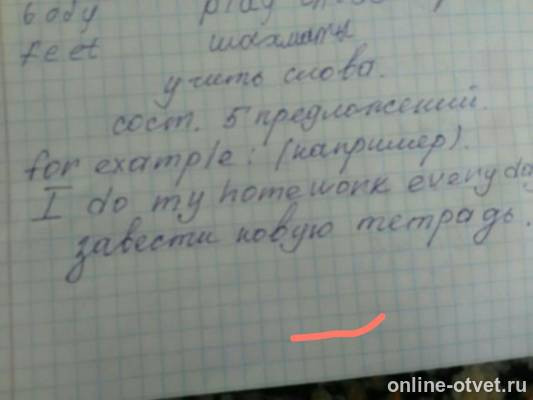 body play
feet шахматы
учить слова.
сост. 5 предложений.
for example: (например).
I do my homework every day
завести новую тетрадь.
online-otvet.ru